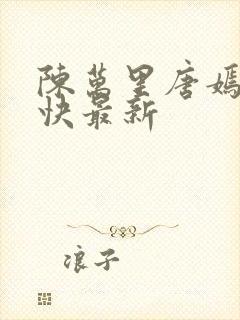 陳萬里唐嫣
快最新
浪子